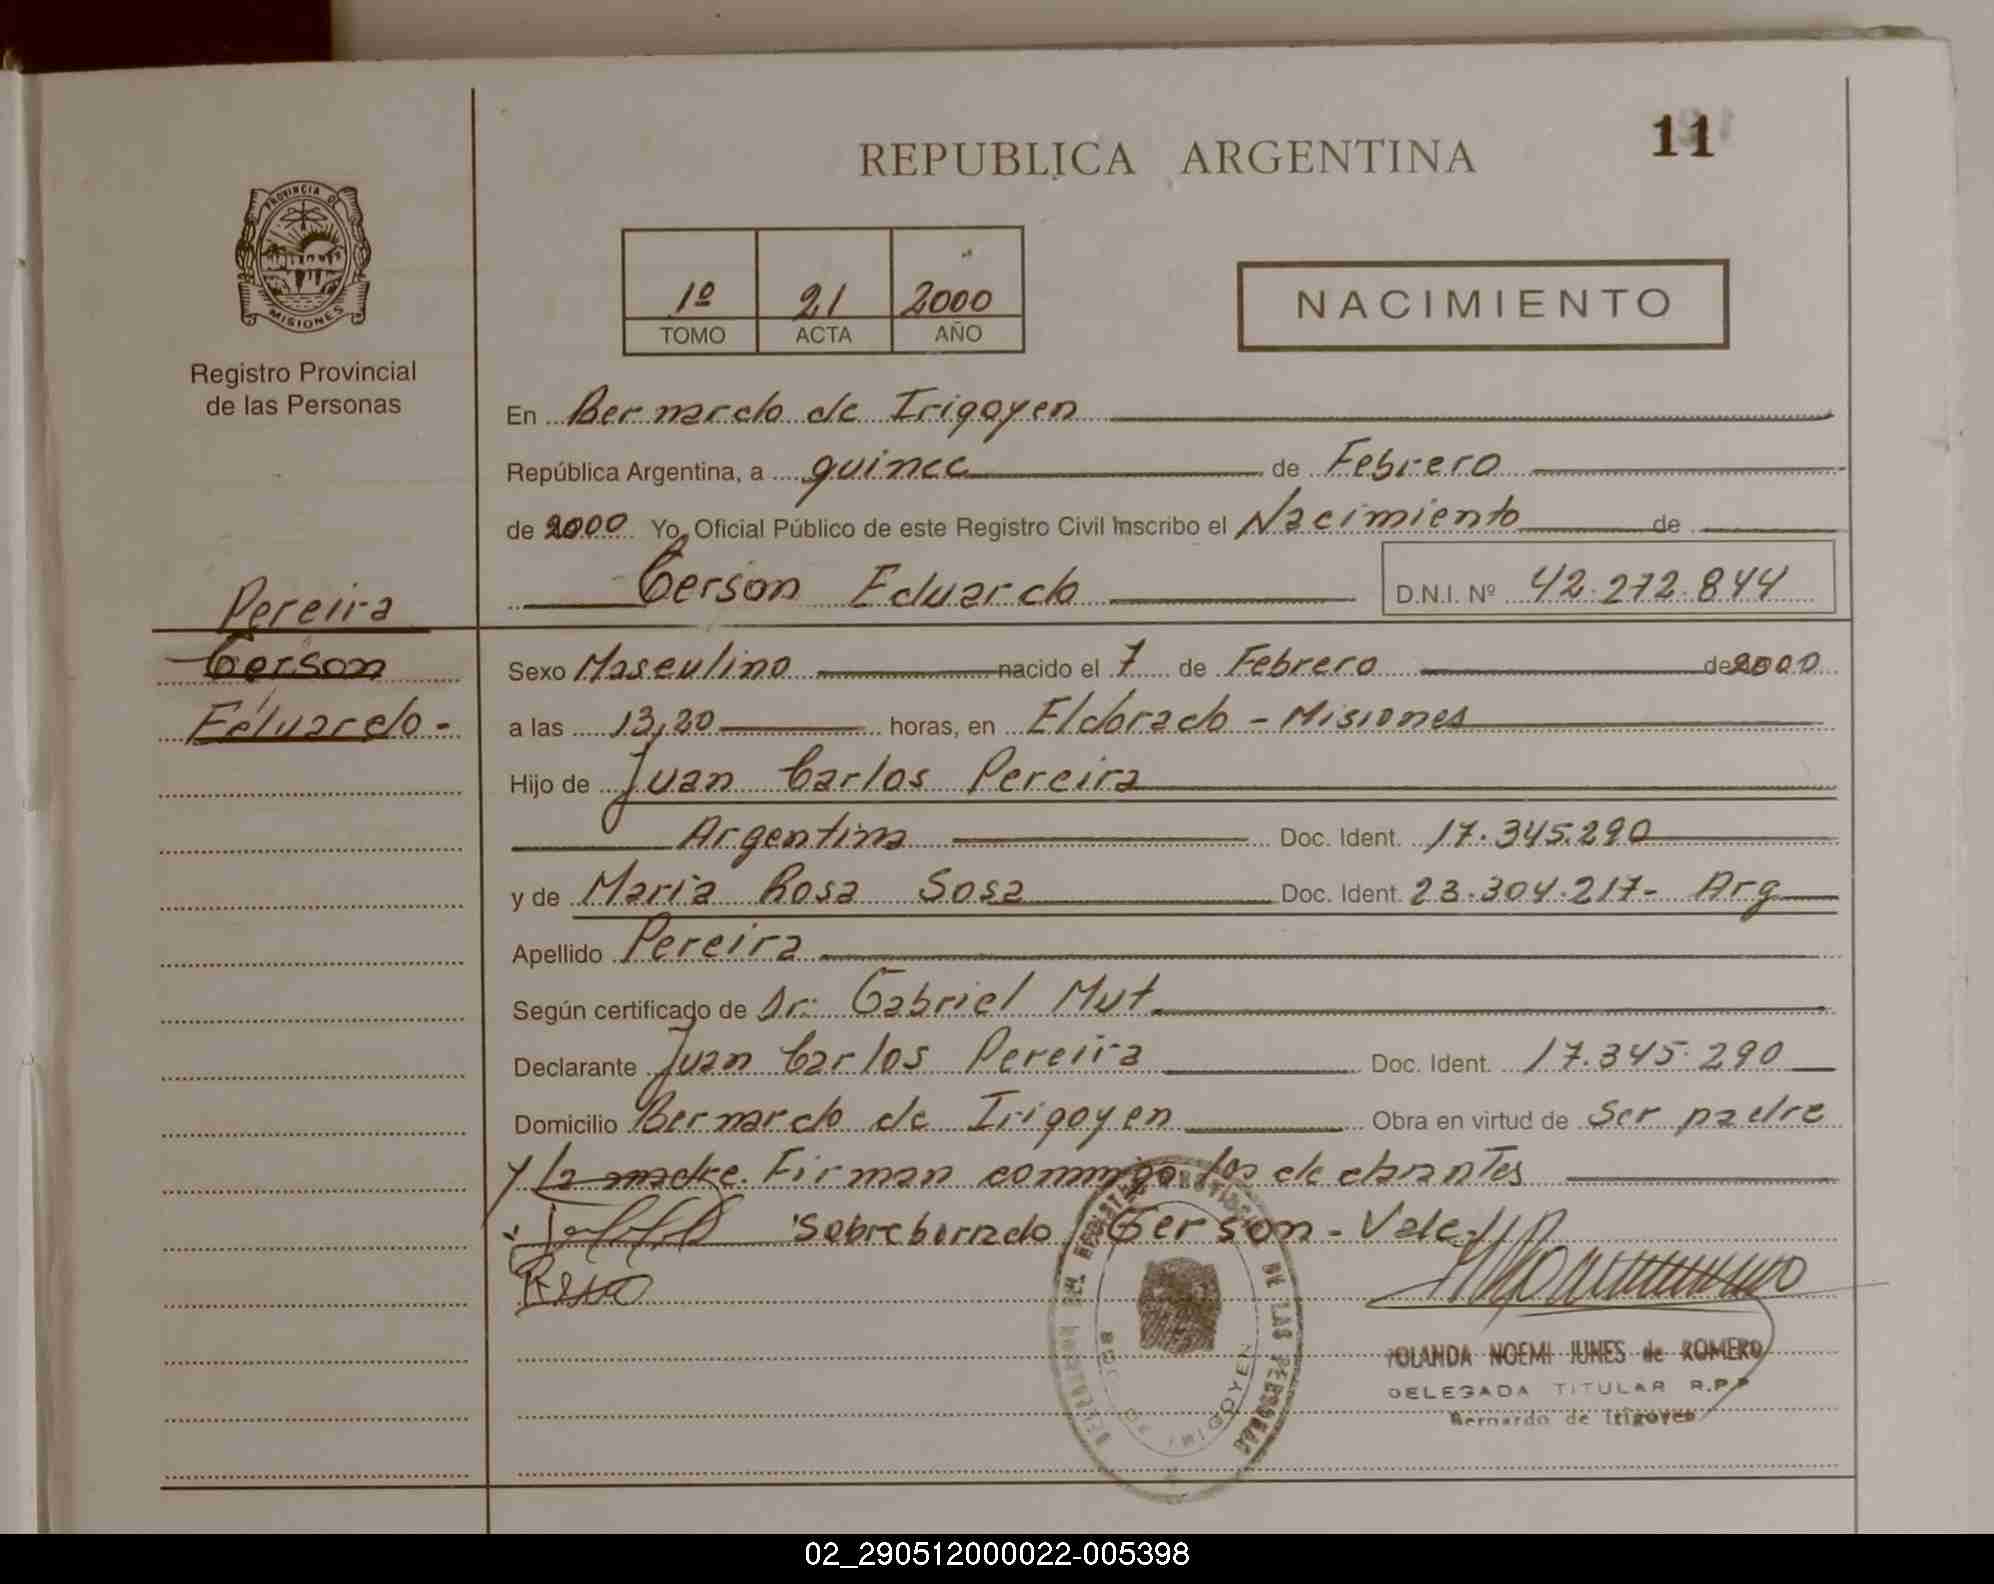 11
REPUBLICA ARGENTINA
PROVINCIA DE
MISIONES
Registro Provincial
de las Personas
1º 21 2000
TOMO ACTA AÑO
NACIMIENTO
En Bernardo de Irigoyen
República Argentina, a quince de Febrero
de 2000 Yo, Oficial Público de este Registro Civil Inscribo el Nacimiento de
Gerson Eduardo D.N.I. Nº 42.272.844
Pereira
Gerson
Eduardo-
Sexo Masculino nacido el 7 de Febrero de 2000
a las 13,20 horas, en Eldorado - Misiones
Hijo de Juan Carlos Pereira
Argentina Doc. Ident. 17.345.290
y de Maria Rosa Sosa Doc. Ident. 23.304.217- Arg
Apellido Pereira
Según certificado de Dr. Gabriel Mut
Declarante Juan Carlos Pereira Doc. Ident. 17.345.290
Domicilio Bernardo de Irigoyen Obra en virtud de Ser padre
y la madre. Firman conmigo los declarantes
Sobreborrado / Gerson - Vale-/
DE LAS PERSONAS
IRIGOYEN
YOLANDA NOEMI JUNES de ROMERO
DELEGADA TITULAR R.P.P
Bernardo de Irigoyen
02_290512000022-005398